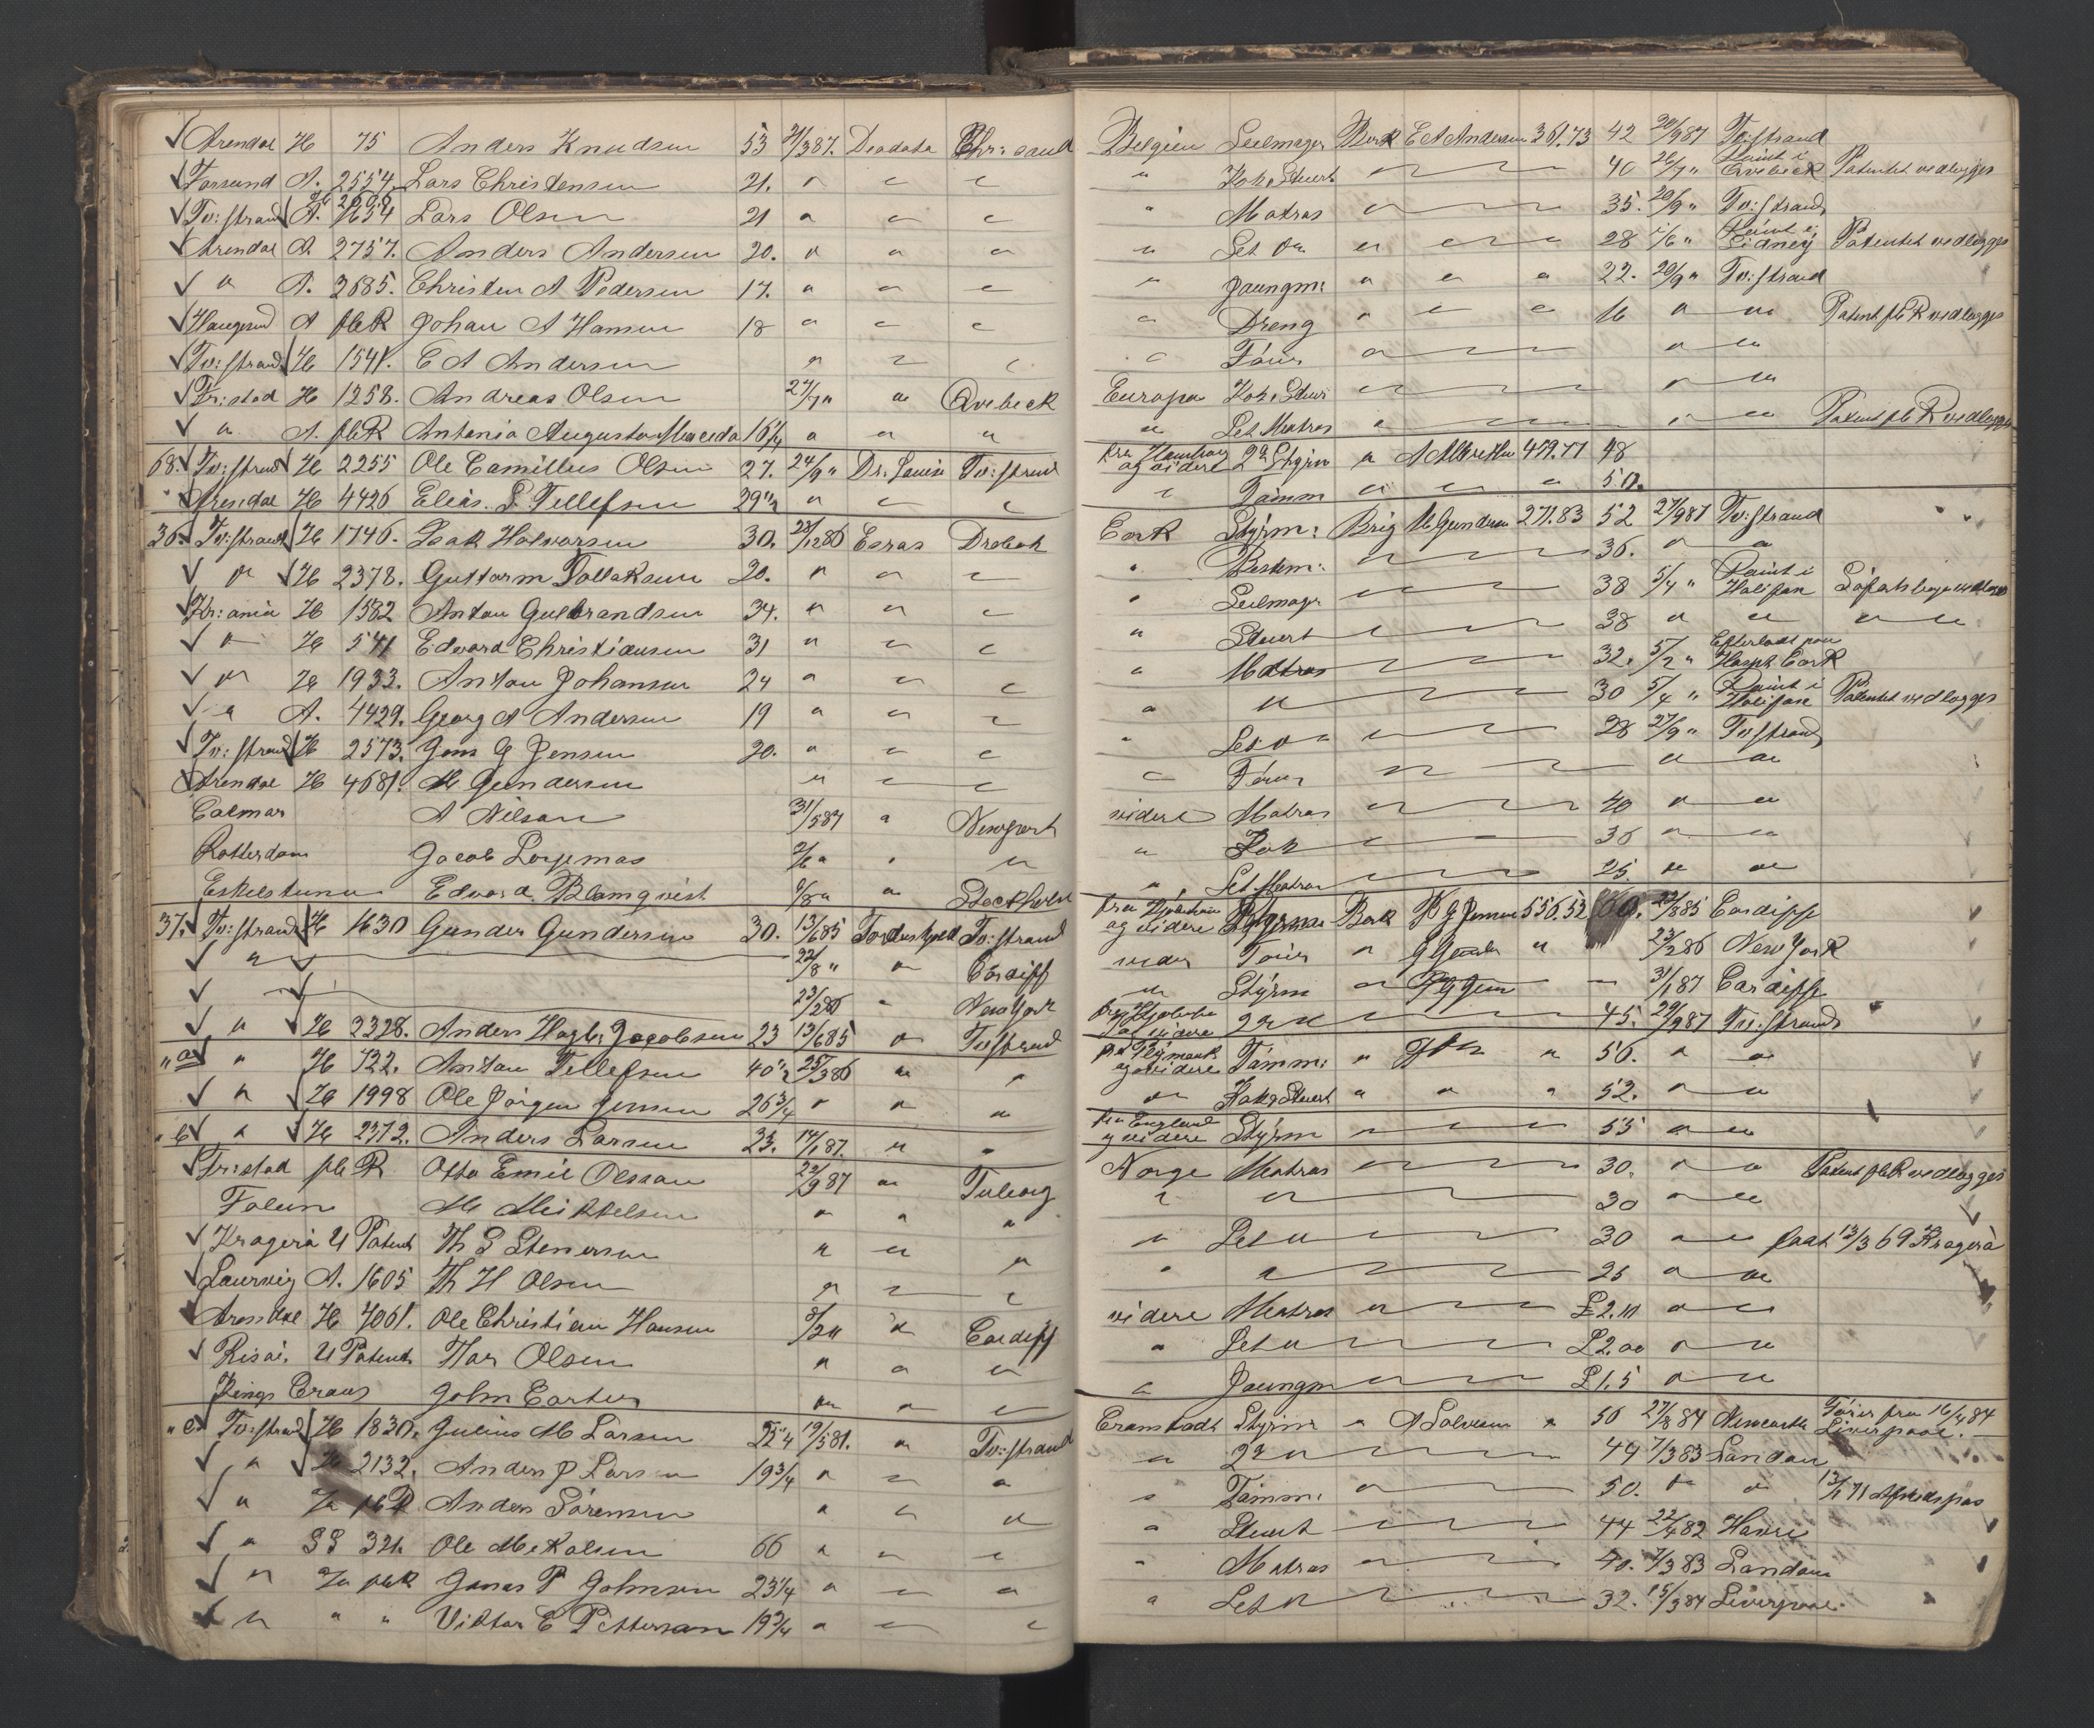 Arendal H 75 Anders Knudsen 53 21/387. Deodata Chr:sand
Farsund A. 2554. Lars Christensen 21. " " "
Tv:strand A. 1654 Lars Olsen 21 " " "
Arendal A. 2757. Anders Andersen 20. " " "
" A. 2685. Christen A Pedersen 17. " " "
Haugesund A pbR Johan A Hansen 18 " " "
Tv:strand H 1541. E A Andersen " " "
Fr:stad H 1258. Andreas Olsen 27/7" " Qvebeck
" A. pbR Antonio Augusto Macedo 16 1/4 " " "
68. Tv:strand H 2255 Ole Camillus Olsen 27. 24/9" Dr. Louise Tv:strand
" Arendal H 4426 Elias. S. Tellefsen 39 1/2 " " "
36. Tv:strand H 1746. Isak Halvorsen 30. 28/1286 Esras Drøbak
" H 2378. Guttorm Tollaksen 20. " " "
Kr:ania H 1582 Anton Gulbrandsen 34. " " "
" H 541 Edvard Christiansen 31 " " "
" H 1933. Anton Johansen 24 " " "
" A. 4429. Georg A Andersen 19 " " "
Tv:strand H 2573. Jens G Jensen 20. " " "
Arendal H 4681. M Gundersen " " "
Calmar A Nilson 31/587 " Newport
Rotterdam Jacob 2/6" " "
Eskelstuna Edvard Blomqvist 9/8" " Stockholm
37. Tv:strand H 1630 Gunder Gundersen 30. 13/685 Tordenskjold Tv:strand
" 22/8" " Cardiff
23/286 " New York
" H 2328. Anders Hagb. Jacobsen 23 13/685 " Tv:strand
"a " H 722. Anton Tellefsen 40 1/2 25/386 " "
" H 1998 Ole Jörgen Jensen 26 3/4 " " "
"b " H 2372. Anders Larsen 23. 14/187. " "
Fr:stad pbR Otto Emil Olsson 22/987 " Tuborg
Falun M Mikkelsen " " "
Kragerø U Patent Th S Stenersen " " "
Laurvig A. 1605 Th H Olsen " " "
Arendal H 4061. Ole Christian Hansen 8/2" " Cardiff
Risør. U Patent Thor Olsen " " "
Kings John Carter " " "
"c Tv:strand H 1820. Julius M Larsen 22 1/4 19/581. " Tv:strand
" H 2132. Anders J Larsen 19 3/4 " " "
" pbR Anders Sörensen " " "
" SS 321. Ole Mekalsen 66 " " "
" pbR Jonas P Johnson 23 1/4 " " "
" " " Viktor E Petterson 19 3/4 " " "
Belgien Seilmager Bark E A Andersen 361.73 42 20/987 Tv:strand
" Kok & Stuert " 40 26/7" Rømt i Qvebeck Patentet vedlægges
" Matros " 35. 20/9" Tv:strand
" Let do " " " 28 1/6" Rømt i Sidney Patentet vedlægges
" Jaungm: " " " 22. 20/9" Tv:strand
" Dreng " " " 16 " " Patent pbR vedlægges
" Förer " " "
Europa Kok & Stuert " " "
" Let Matros " " " Patent pbR vedlægges
fra Hamburg og videre 2den Styrm " 479.77 48
" Tömm " " " 50.
Cork Styrm: Brig M Gundersen 271.83 52 27/987 Tv:strand
" Bestm: " 36. " "
" Seilmager " 38 5/4" Rømt i Halifax
" Stuert " 38 " " " "
" Matros " 32. 5/2" Efterladt paa Hosp. Cork
" " " 30 5/4" Rømt i Halifax Patentet vedlægges
" Let do " 28 27/9" Tv:strand
" Förer " " "
videre Matros " 40 " "
" Kok " 36 " "
" Let Matros " 25. " "
fra og videre Styrm Bark G Jensen 556.52 60. 22/885 Cardiff
videre Förer " " 23/286 New York
" Styrm " 31/187 Cardiff
og videre 2den " " 45. 29/987 Tv:strand
og videre Tömm: " " " 56. " "
" Kok & Stuert " " " 52. " "
fra England og videre Styrm " 55 " "
Norge Matros " 30. " " Patent pbR vedlægges
" " " 30 " "
" Let " " 30 " " 13/3 69 Kragerø
" " " 25 " "
videre Matros " £2.10 " "
" Let " " £2.00 " "
" Jaungm " £1.5 " "
Cronstadt Styrm " A Salvesen " 56 27/884 Newcastle Förer fra 16/484 Liverpool.
" 2den " 44 7/383 London
" Tömm: " 50. " " 13/1 71 Afskedspas
" Stuert " 44 22/482 Havre
" Matros " 40. 7/383 London
" Let " " 32. 15/384 Liverpool.